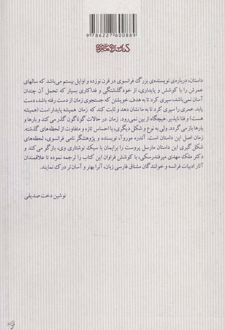 9 786226 008693
داستان، درباره‌ی نویسنده‌ی بزرگ فرانسوی در قرن نوزده و اوایل بیستم می‌باشد که سالهای
عمرش را با کوشش و پایداری، از خودگذشتگی و فداکاری بسیار که تحمل آن چندان
آسان نمی‌باشد، سپری کرد تا به هدف خویشتن که جستجوی زمان از دست رفته باشد، دست
یابد. عمری را سپری کرد تا به ما نشان دهد و ثابت کند که زمان همیشه پایدار است (همیشه
هست) و فنا ناپذیر. هیچگاه از بین نمی‌رود. زمان در حالات گوناگون گذر می‌کند و بارها و
بارها باز می‌گردد. ولی به نوع و شکل دیگری، با احساس تازه و متفاوت از لحظه‌های گذشته.
زمان اصل این داستان است. آندره موروآ، نویسنده و پژوهشگر نامی فرانسوی، لحظه‌های
شکل گیری این داستان مارسل پروست را برایمان با سبک نوشتاری وی، بازگو می‌کند و
دکتر ملک مهدی میرفندرسکی، با کوشش فراوان این کتاب را ترجمه نموده تا علاقمندان
آثار ادبیات فرانسه و خوانندگان مشتاق فارسی زبان، آنرا بهتر و آسان‌تر درک نمایند.
نوشین دخت صدیقی